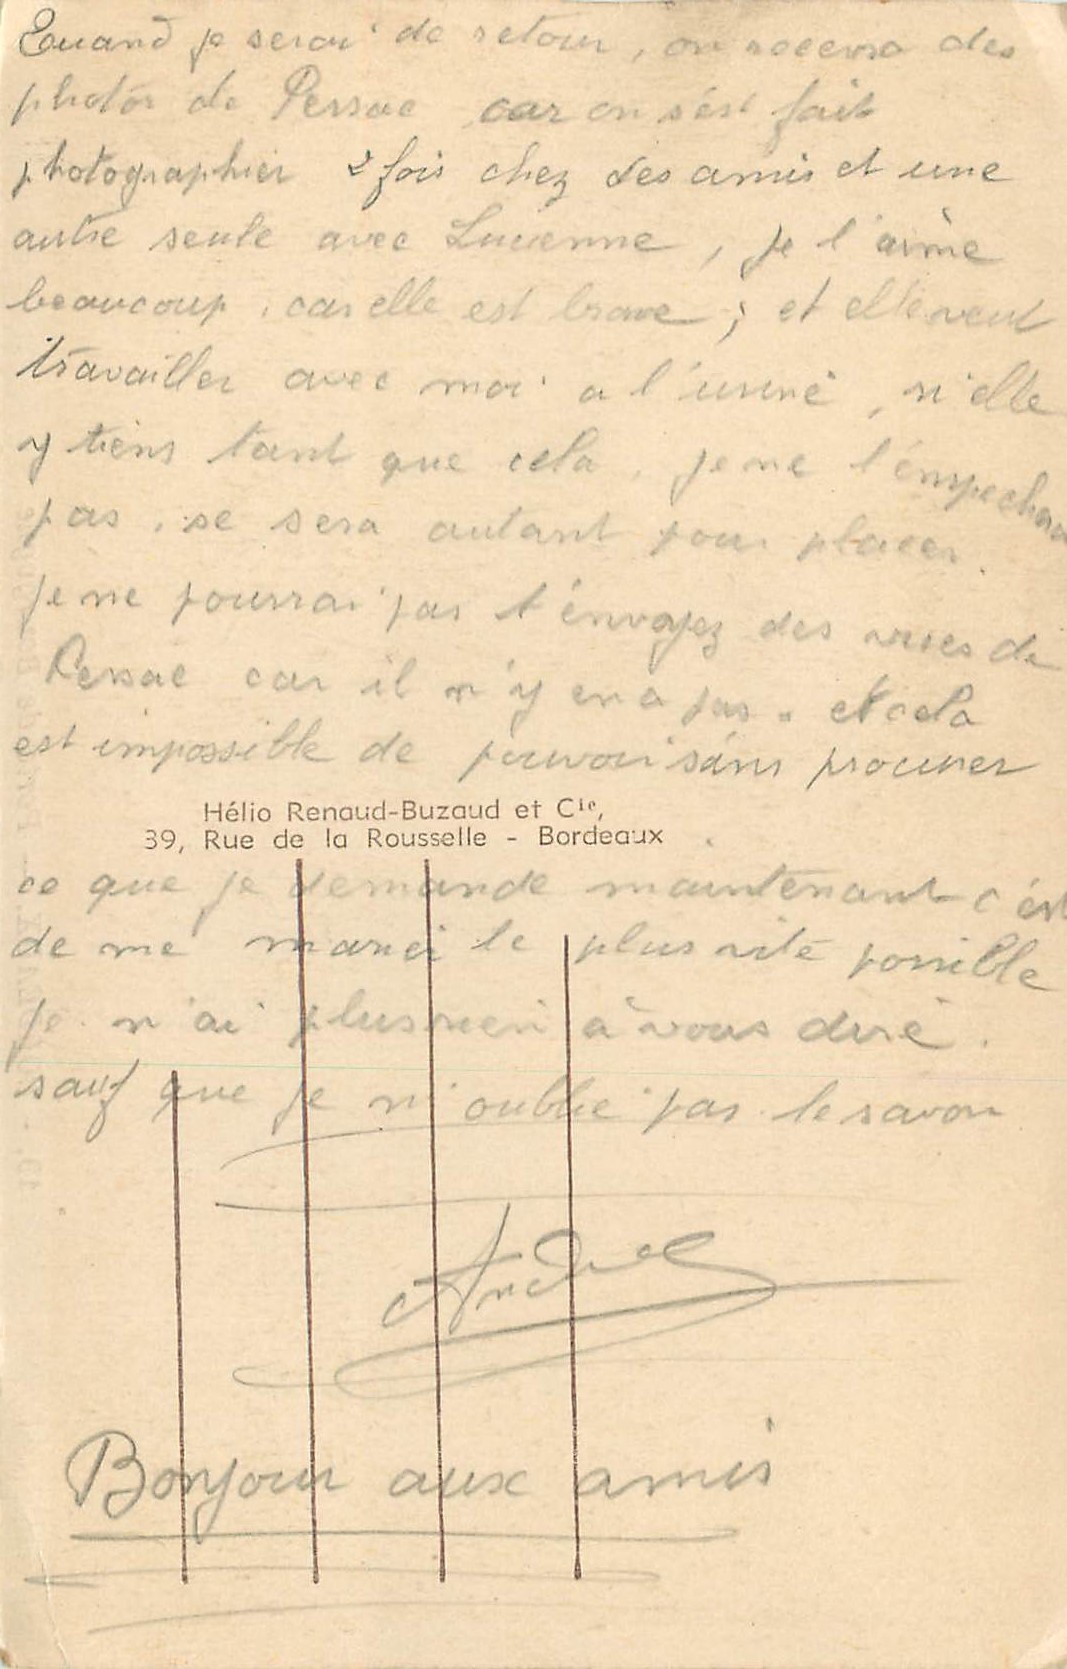 Quand je serai de retour, on recevra des
photos de Pessac car on s'est fait
photographier 2 fois chez des amis et une
autre seule avec Lucienne, je l'aime
beaucoup, car elle est brave; et elle veut
travailler avec moi a l'usine, si elle
y tiens tant que cela, je ne l'empechera
pas, se sera autant pour placer.
Je ne pourrai pas t'envoyez des vues de
Pessac car il n'y en a pas. et cela
est impossible de pouvoir s'ans procurer
Hélio Renaud-Buzaud et Cie,
39, Rue de la Rousselle - Bordeaux
ce que je demande maintenant c'est
de me marier le plus vite possible
Je n'ai plus rien à vous dire.
sauf que je n'oublie pas le savon
André
Bonjour aux amis